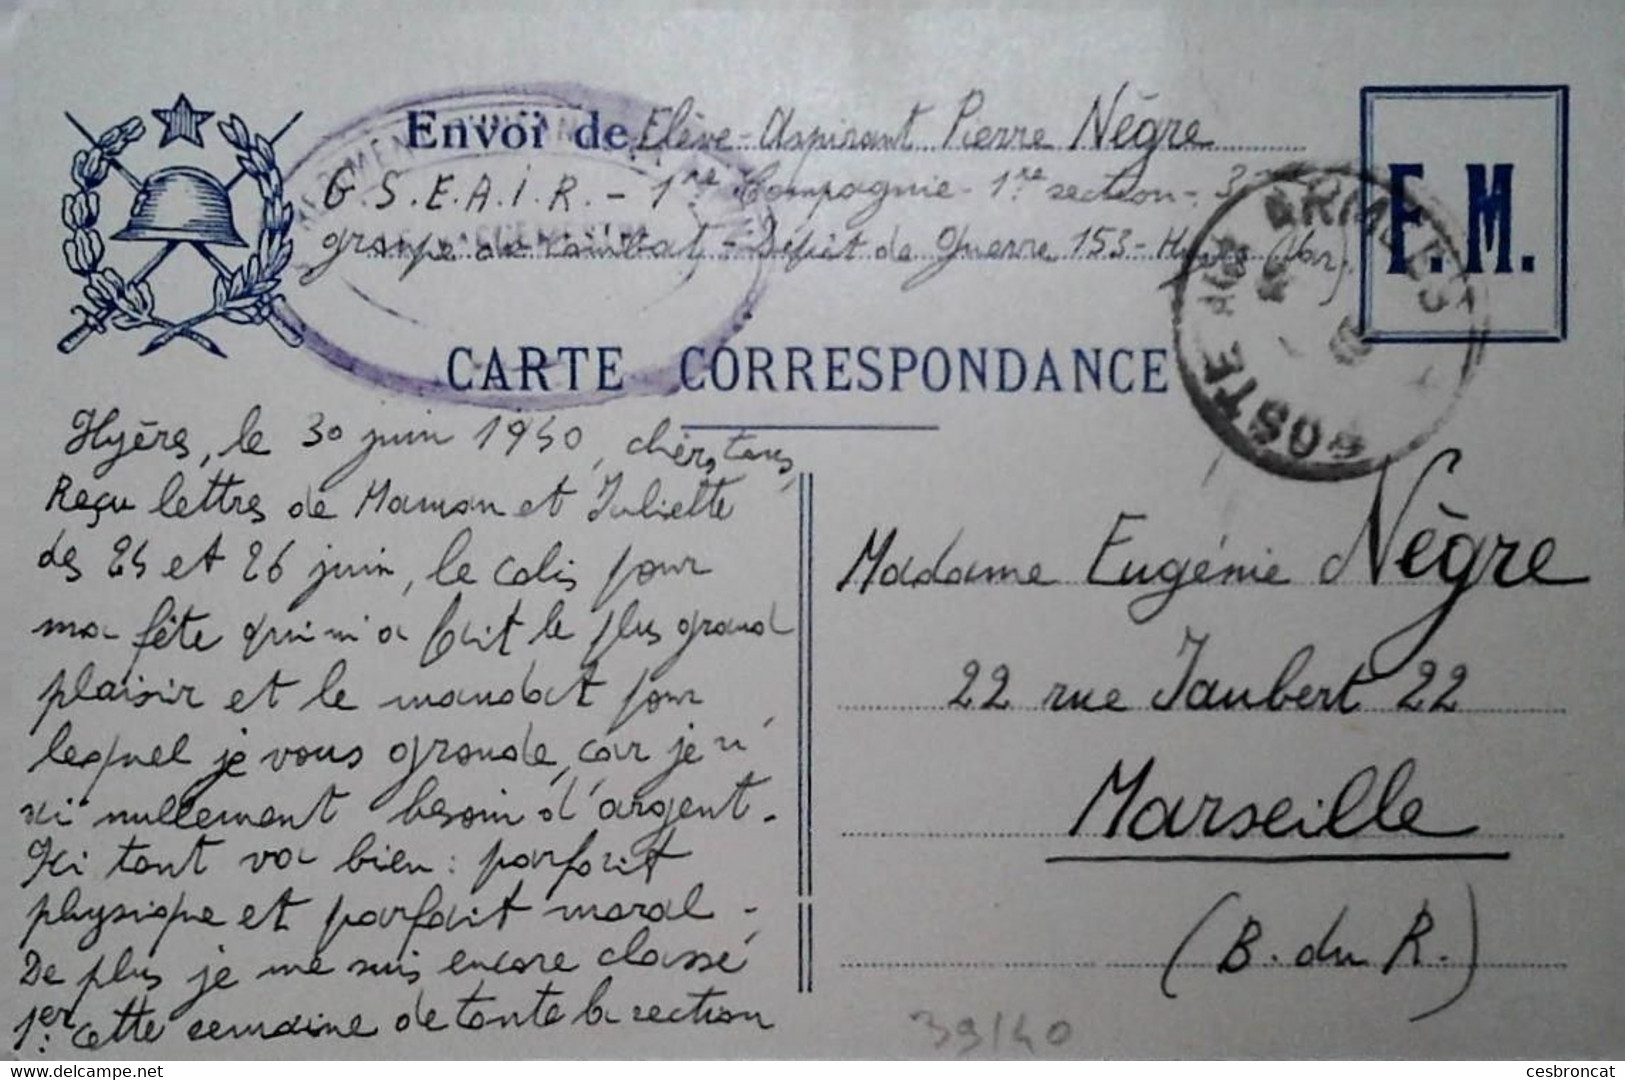 Envoi de Elève-Aspirant Pierre Nègre
G.S.E.A.I.R. - 1re Compagnie - 1re section - 3
groupe de combat - Dépôt de Guerre 153 - Hyères (Var)
F.M.
POSTE AUX ARMEES
CARTE CORRESPONDANCE
Hyères, le 30 juin 1940, chers tous,
Reçu lettres de Maman et Juliette
des 24 et 26 juin, le colis pour
ma fête qui m'a fait le plus grand
plaisir et le mandat pour
lequel je vous gronde, car je n'
ai nullement besoin d'argent.
Ici tout va bien : parfait
physique et parfait moral.
De plus je me suis encore classé
1er cette semaine de toute la section
Madame Eugénie Nègre
22 rue Jaubert 22
Marseille
(B. du R.)
39/40
cesbroncat